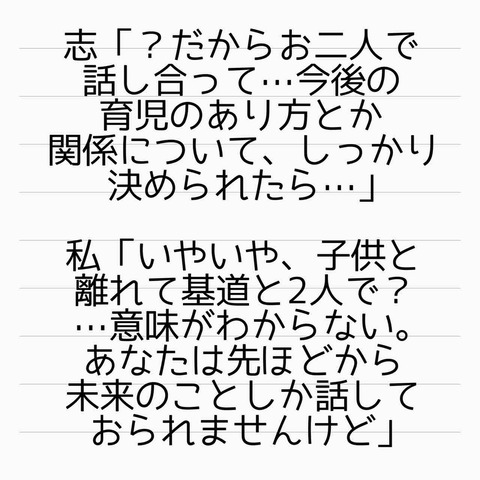 志「？だからお二人で
話し合って…今後の
育児のあり方とか
関係について、しっかり
決められたら…」
私「いやいや、子供と
離れて基道と2人で？
…意味がわからない。
あなたは先ほどから
未来のことしか話して
おられませんけど」